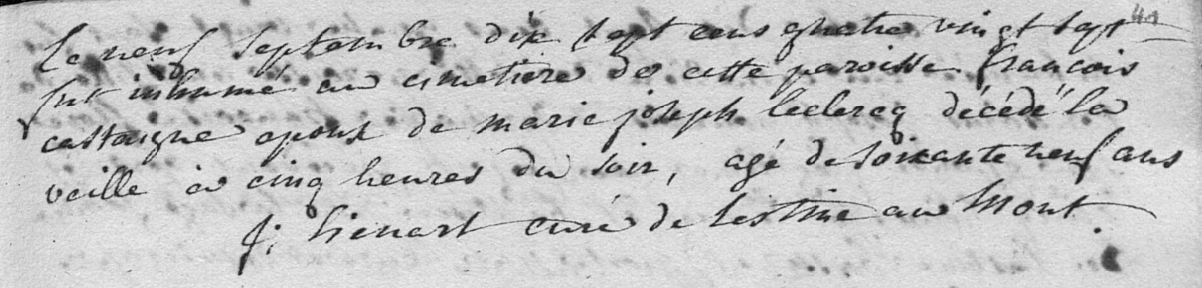 Le neuf Septembre dix Sept cens quatre vingt Sept
fut inhumé au cimetiere de cette paroisse francois
castaigne epoux de marie joseph leclercq décédé la
veille a cinq heures du soir, agé de soixante neuf ans
f: hienart curé de lestine au Mont